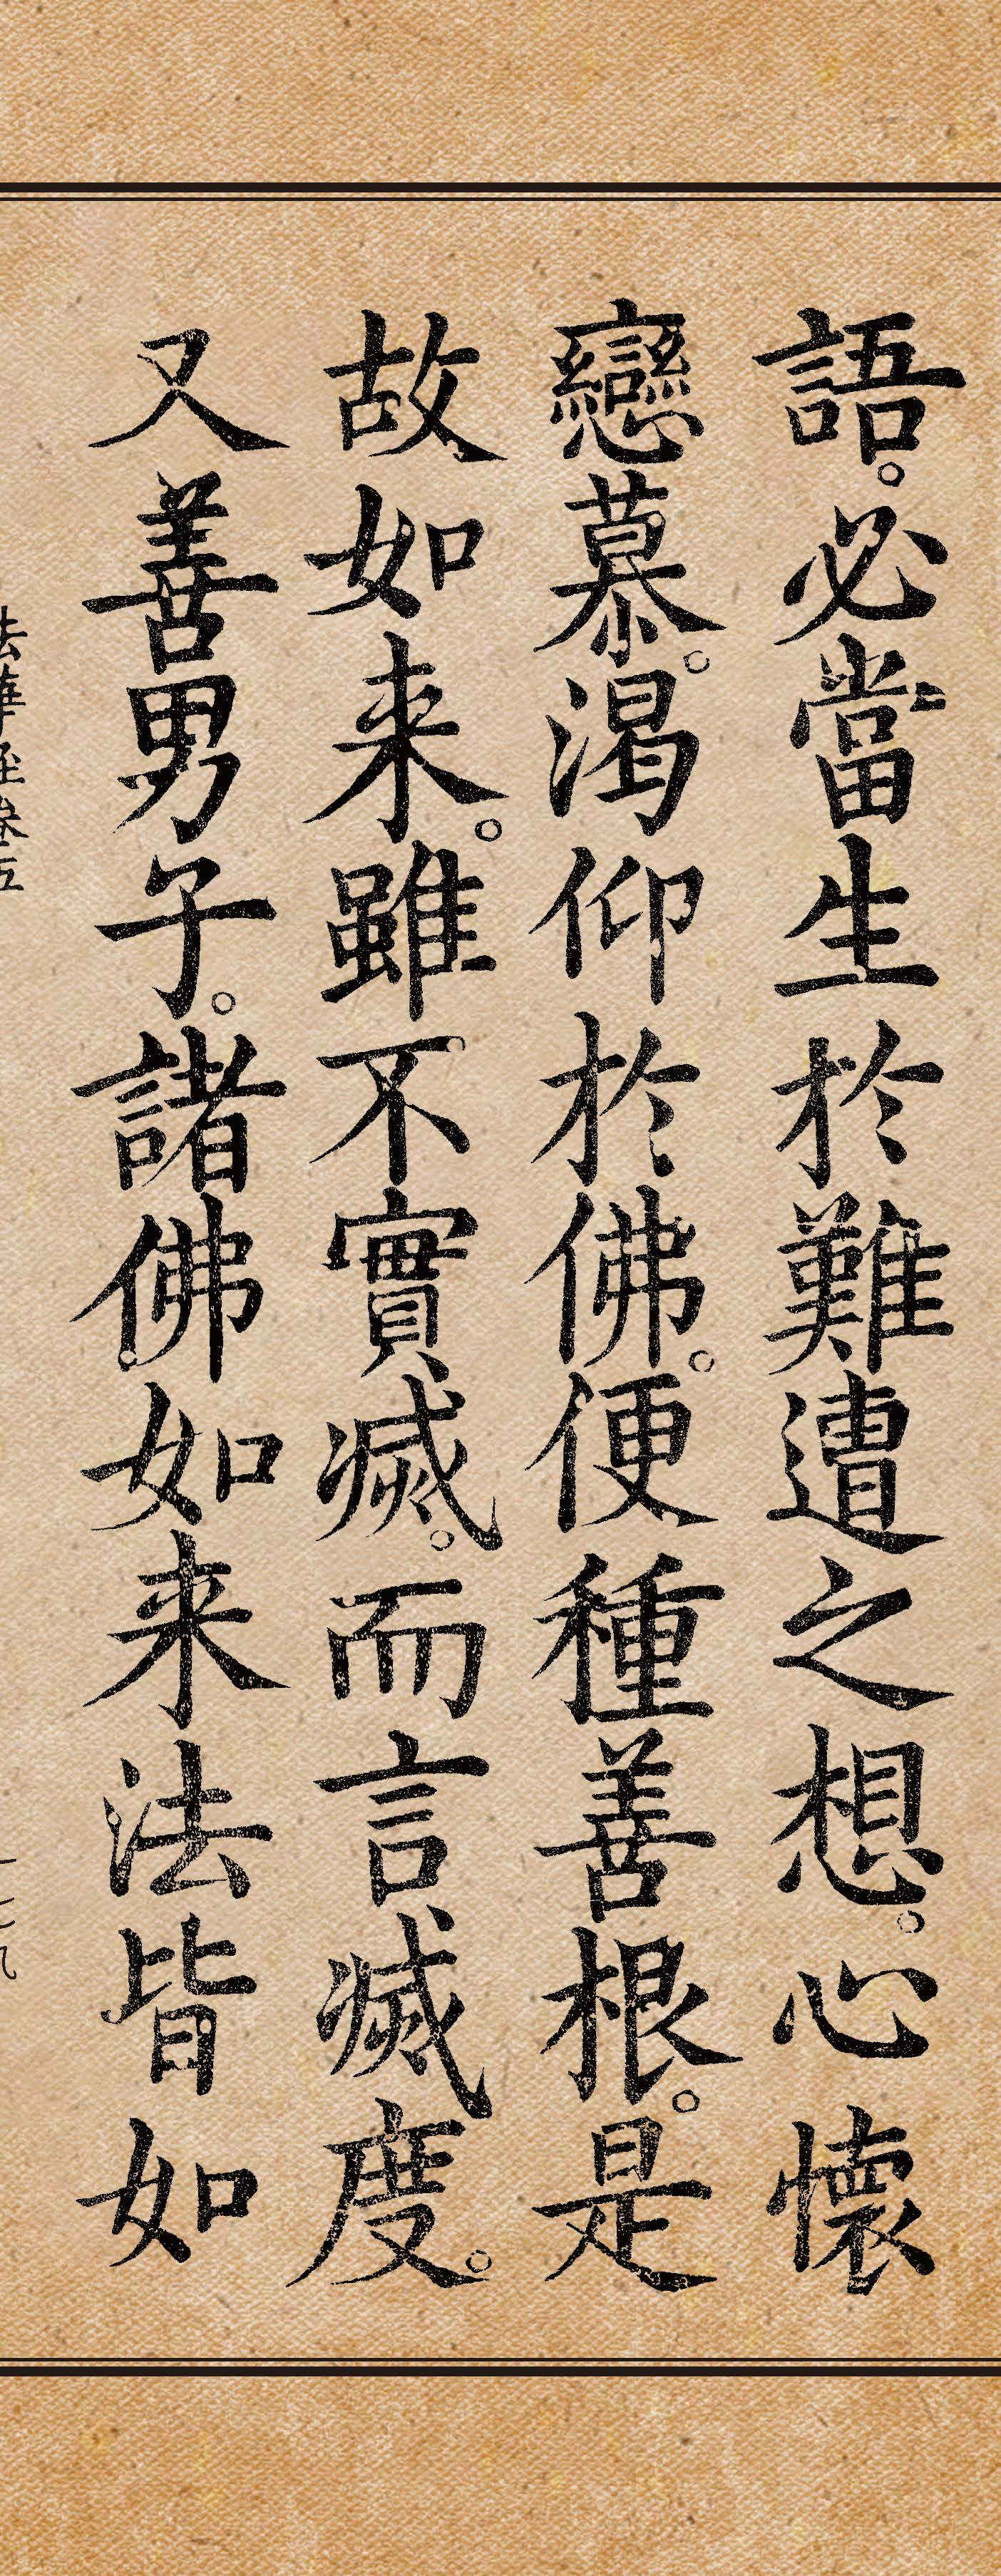 語。必當生於難遭之想。心懷
戀慕。渴仰於佛。便種善根。是
故如来。雖不實滅。而言滅度。
又善男子。諸佛如来法皆如
法華経巻五